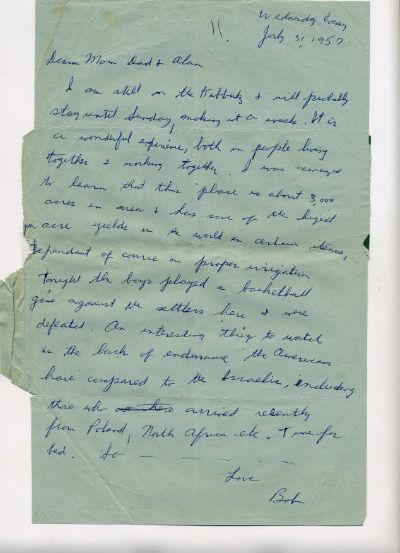 11.
Wednesday Evening
July 31, 1957
Dear Mom Dad & Alan
I am still on the Kibbutz & will probably
stay until Sunday, making it a week. It is
a wonderful experience, both in people living
together & working together. I was
to learn that this place is about 3,000
acres in area & has some of the largest
per acre yields in the world in certain items,
dependant of course on proper irrigation
Tonight the boys played a basketball
game against the settlers here & were
defeated. An interesting thing to watch
is the lack of endurance the American
have compared to the Israelis, including
those who arrived recently
from Poland, North Africa etc. Time for
bed. So —
Love
Bob